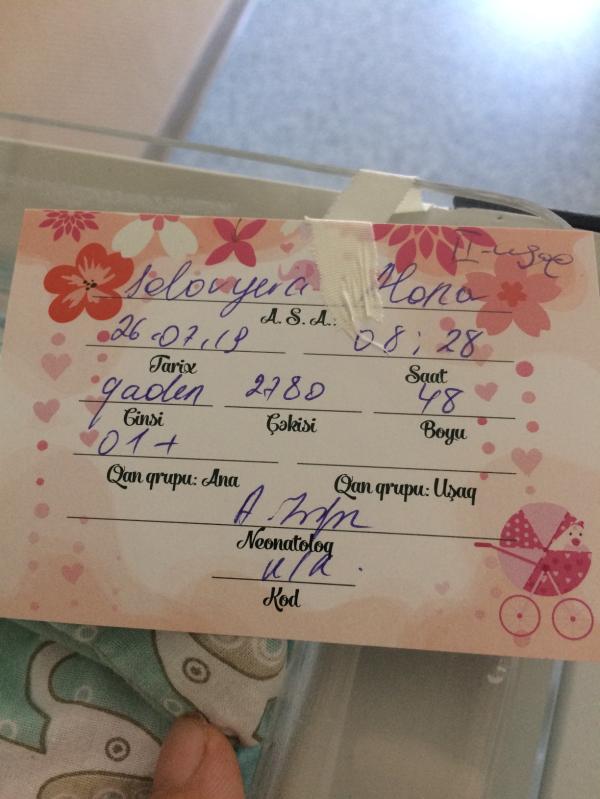 II-uşaq
Solovyeva
A. S. A.:
26.07.19 08:28
Tarix Saat
qadın 2780 48
Cinsi Çəkisi Boyu
01+
Qan qrupu: Ana Qan qrupu: Uşaq
Neonatoloq
Kod